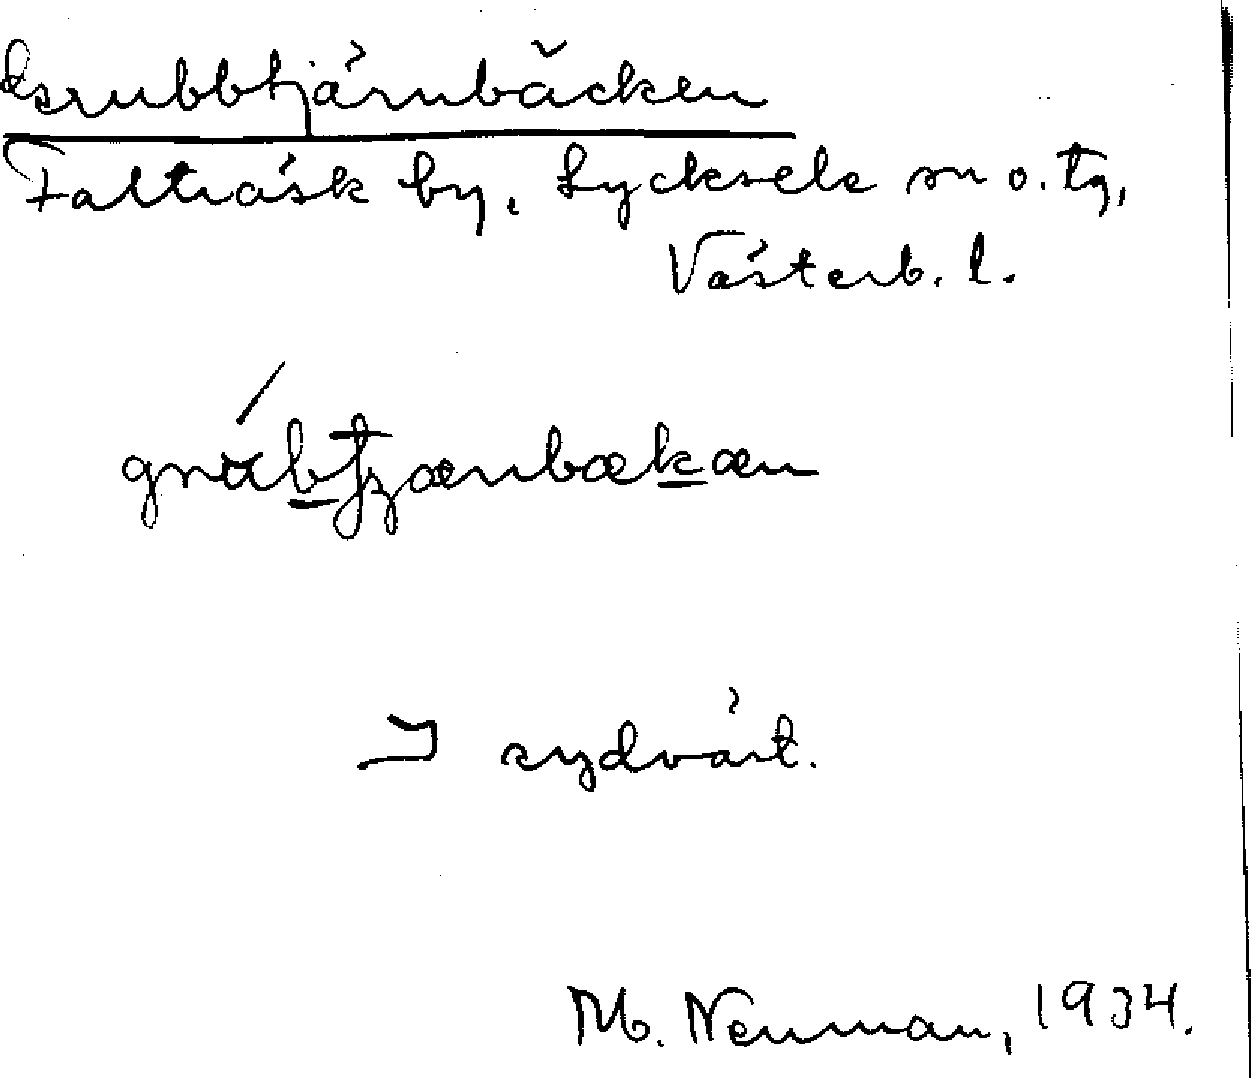 Grubbtjärnbäcken
Falträsk by, Lycksele sn o. tg,
Västerb. l.
I sydväst.
M. Neuman, 1934.